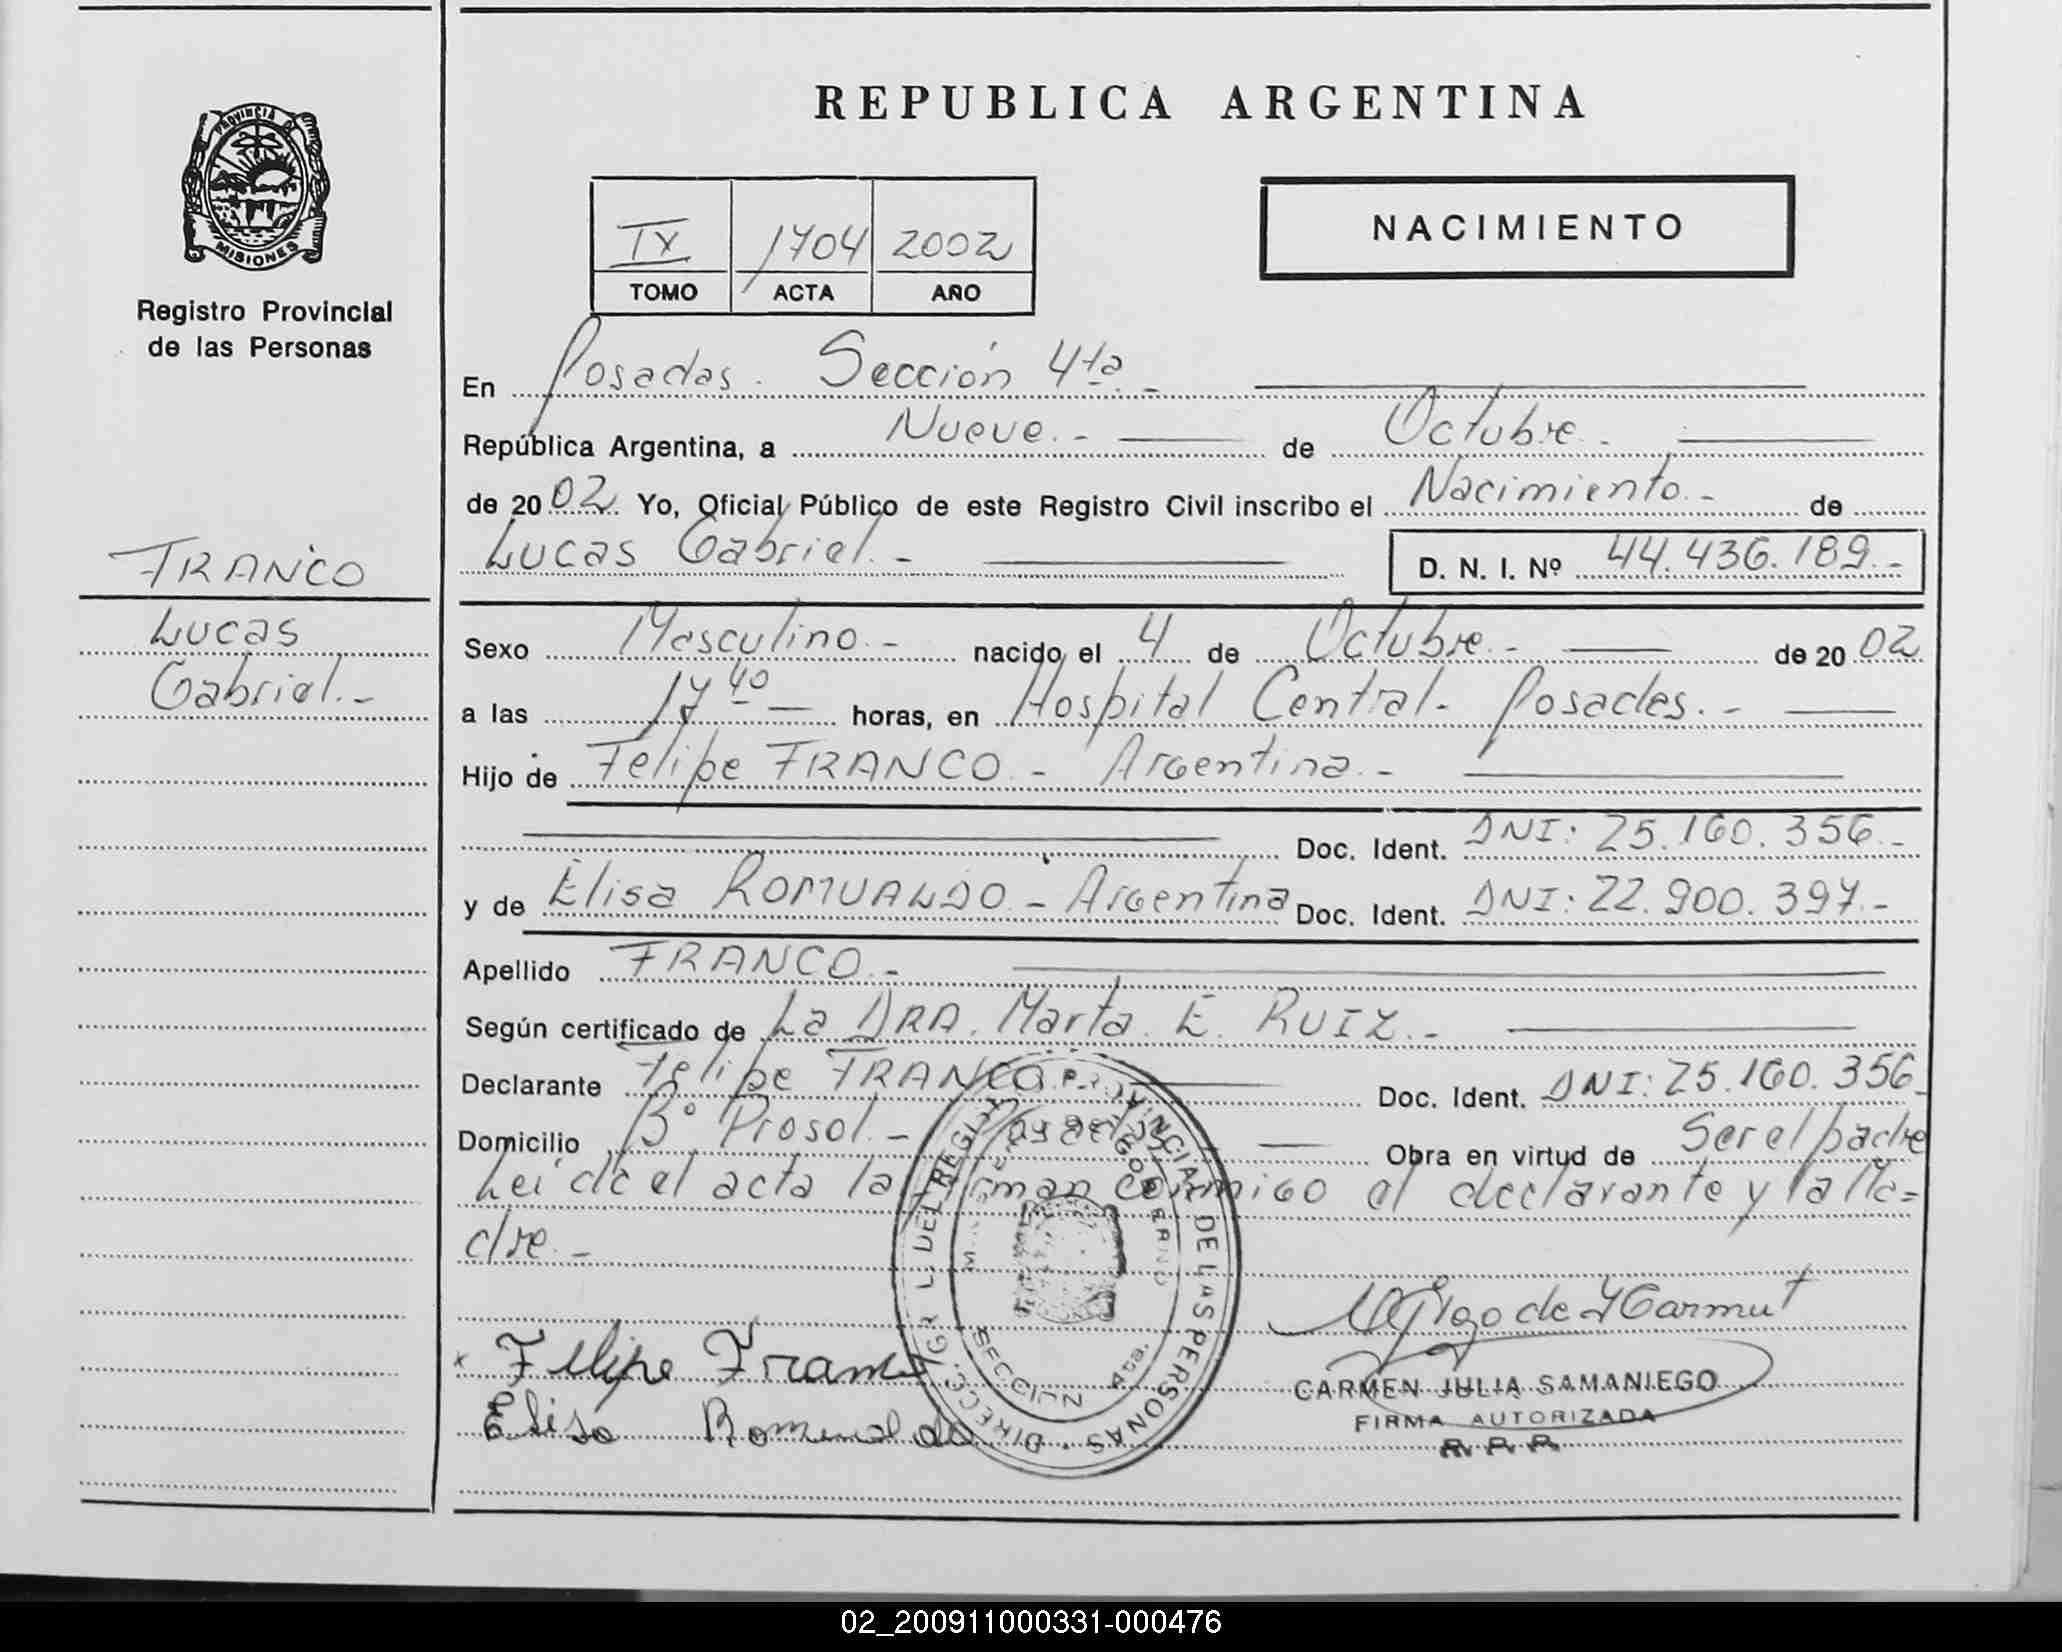 PROVINCIA D
MISIONES
Registro Provincial
de las Personas
FRANCO
Lucas
Gabriel.-
REPUBLICA ARGENTINA
IX 1704 2002
TOMO ACTA AÑO
NACIMIENTO
En Posadas. Sección 4ta.-
República Argentina, a Nueve.- de Octubre.
de 2002 Yo, Oficial Público de este Registro Civil inscribo el Nacimiento.- de
Lucas Gabriel.- D. N. I. Nº 44.436.189.-
Sexo Masculino.- nacido el 4 de Octubre.- de 2002
a las 17 40 horas, en Hospital Central- Posadas.-
Hijo de Felipe FRANCO.- Argentina.-
Doc. Ident. DNI: 25.160.356.-
y de Elisa ROMUALDO.- Argentina Doc. Ident. DNI: 22.900.397.-
Apellido FRANCO.-
Según certificado de La DRA. Marta. E. RUIZ.-
Declarante Felipe FRANCO Doc. Ident. DNI: 25.160.356.-
Domicilio Bº Prosol.- Posadas Obra en virtud de Ser el padre
Leida el acta la firman conmigo el declarante y la Ma=
dre.-
DIRECC. GRL. DEL REGIST. PROVINCIAL DE LAS PERSONAS
GOBIERNO
SECCION 4ta.
x Felipe Franco
Elisa Romualdo
CARMEN JULIA SAMANIEGO
FIRMA AUTORIZADA
R. P. P.
02_200911000331-000476